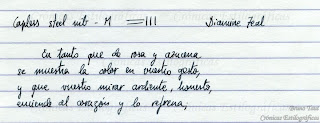 Capless steel nib - M III Diamine Teal
En tanto que de rosa y azucena
se muestra la color en vuestro gesto,
y que vuestro mirar ardiente, honesto,
enciende al corazón y lo refrena;
Crónicas Estilográficas